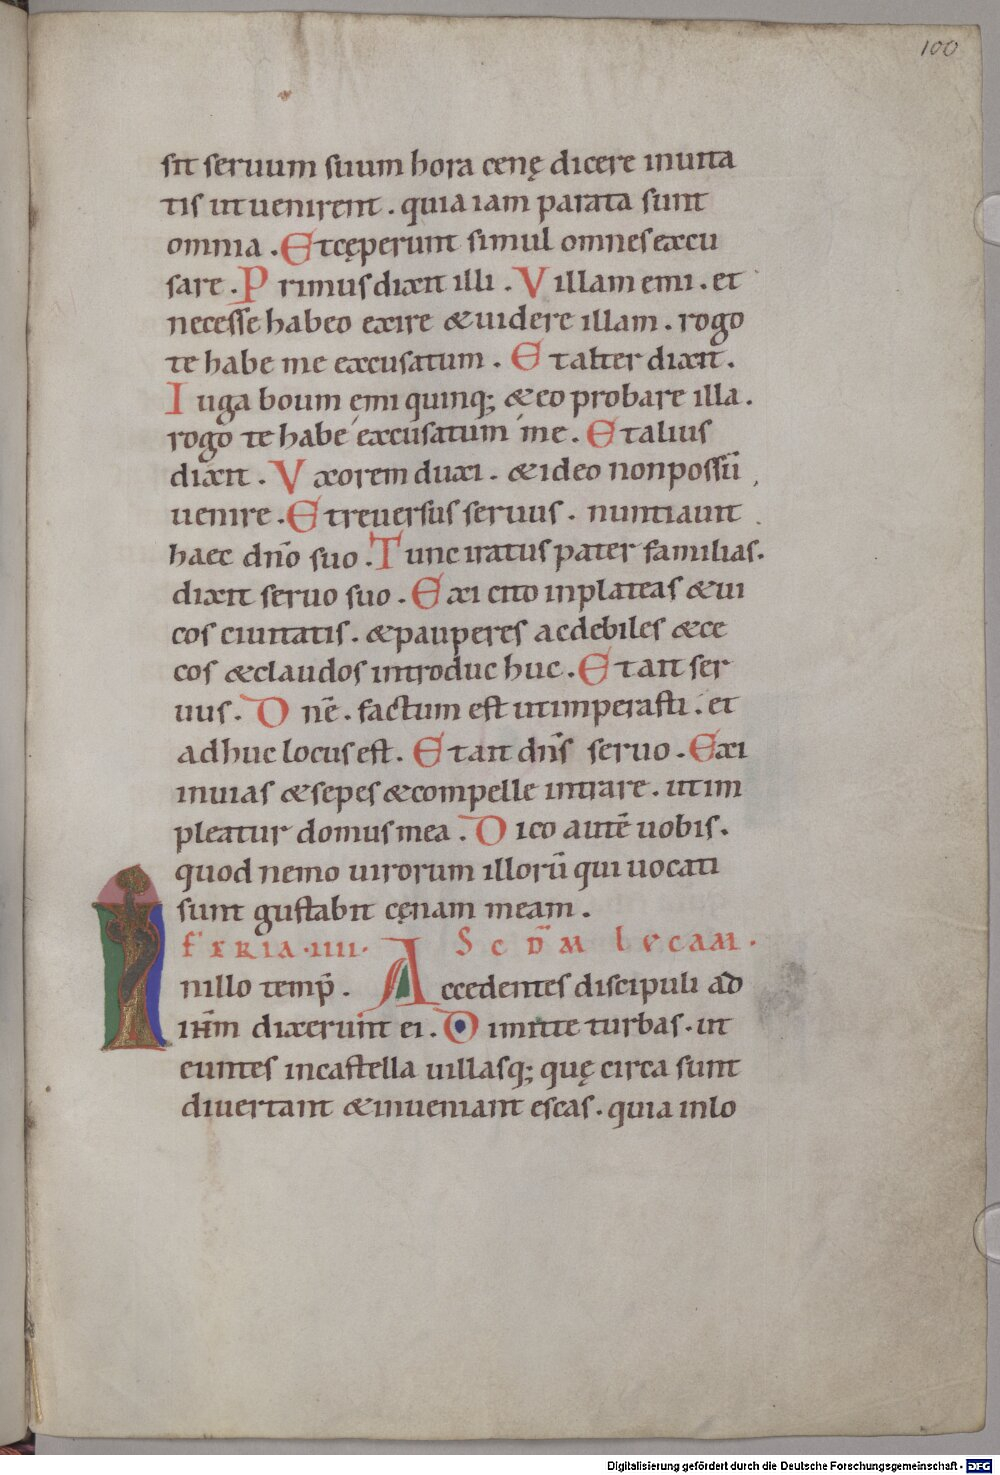 100
sit seruum suum hora cenę dicere inuita
tis ut uenirent . quia iam parata sunt
omnia . Et cęperunt simul omnes excu
sare . Primus dixit illi . Villam emi . et
necesse habeo exire & uidere illam . rogo
te habe me excusatum . Et alter dixit .
Iuga boum emi quinq; & eo probare illa .
rogo te habe excusatum me . Et alius
dixit . Vxorem duxi . & ideo non possū
uenire . Et reuersus seruus . nuntiauit
haec dn̄o suo . Tunc iratus pater familias .
dixit seruo suo . Exi cito in plateas & ui
cos ciuitatis . & pauperes ac debiles & ce
cos & claudos introduc huc . Et ait ser
uus . Dn̄e . factum est ut imperasti . et
adhuc locus est . Et ait dn̄s seruo . Exi
in uias & sepes & compelle intrare . ut im
pleatur domus mea . Dico autē uobis .
quod nemo uirorum illorū qui uocati
sunt gustabit cęnam meam .
FERIA · IIII · SCDM LVCAM ·
In illo temp̄ . Accedentes discipuli ad
ih̄m dixerunt ei . Dimitte turbas . ut
euntes in castella uillasq; quę circa sunt
diuertant & inueniant escas . quia in lo
Digitalisierung gefördert durch die Deutsche Forschungsgemeinschaft - DFG